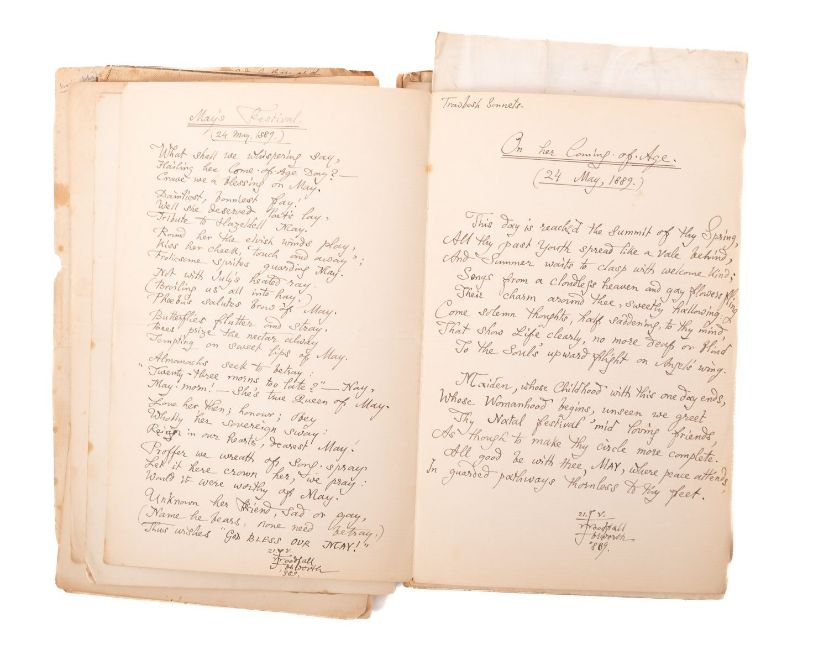 May's Festival.
(24 May, 1889.)
What shall we whispering say,
Hailing her Come-of-Age Day?—
Crave we a blessing on May.
Daintiest, bonniest fay!
Well she deserved Poetic lay,
Tribute to Hazeldell May.
Round her the elvish winds play,
Kiss her cheek, "touch and away";
Frolicsome sprites guarding May.
Not with July's heated ray
(Broiling us all into hay)
Phœbus salutes brow of May.
Butterflies flutter and stray,
Bees prize the nectar alway
Tempting on sweet lips of May.
Almanachs seek to betray:
"Twenty-three morns too late?"—Nay,
May-morn!—She's true Queen of May.
Love her then; honour; obey
Wholly her sovereign sway:
Reign in our hearts, dearest May!
Proffer we wreath of Song-spray,
Let it here crown her, we pray:
Would it were worthy of May.
Unknown her friend, sad or gay,
(Name he bears, none need betray,)
Thus wishes "GOD BLESS OUR MAY!"
21. V.
1889.
Trowbesh Sonnets.
On her Coming-of-Age.
(24 May, 1889.)
This day is reach'd the summit of thy Spring,
All thy past Youth spread like a vale behind,
And Summer waits to clasp with welcome kind:
Songs from a cloudless heaven and gay flowers fling
Their charm around thee, sweetly hallowing,
Come solemn thoughts, half saddening, to thy mind
That show Life clearly, no more deaf or blind
To the Soul's upward flight on Angels' wing.
Maiden, whose Childhood with this one day ends,
Whose Womanhood begins, unseen we greet
Thy Natal festival 'mid loving friends,
As though to make thy circle more complete.
All good be with thee, MAY, where peace attends,
In guarded pathways thornless to thy feet.
21. V.
1889.